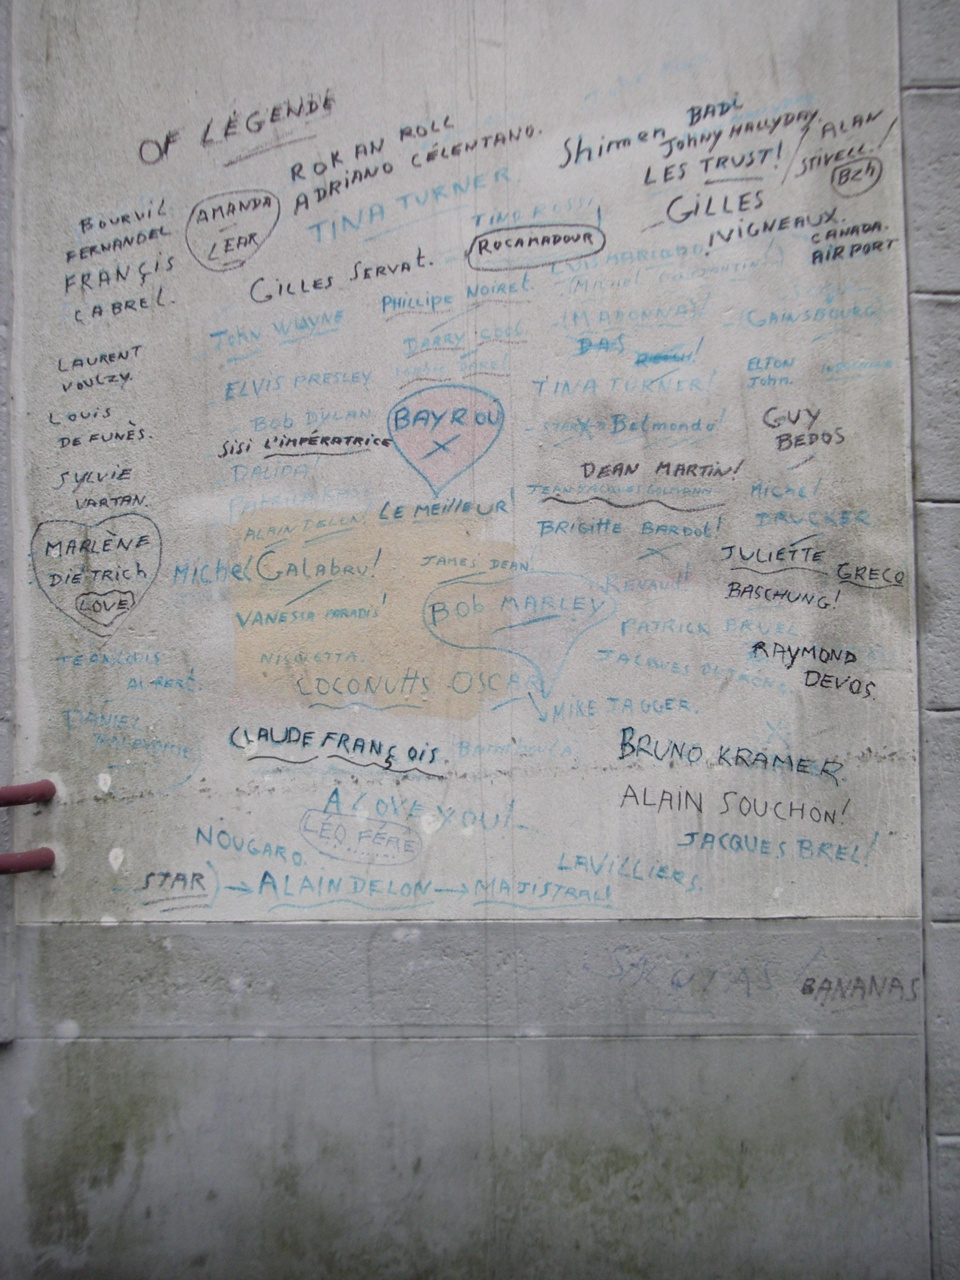 OF LÉGENDE
ROK AN ROLL
ADRIANO CÉLENTANO.
TINA TURNER
Shirmen BADI
JOHNY HALLYDAY.
LES TRUST!
ALAN
STIVELL!
Bzh
BOURVIL
FERNANDEL
FRANÇIS
CABREL.
AMANDA
LEAR
TINO ROSSI
ROCAMADOUR
GILLES
VIGNEAUX.
CANADA.
AIRPORT
GILLES SERVAT.
PHILLIPE NOIRET.
LUIS MARIANO
John WAYNE
(MADONNA)
GAINSBOURG
LAURENT
VOULZY.
ELVIS PRESLEY
TINA TURNER!
ELTON
John.
LOUIS
DE FUNÈS.
BOB DYLAN
BAYROU
X
Belmondo!
GUY
BEDOS
SISI L'IMPÉRATRICE
DALIDA!
DEAN MARTIN!
SYLVIE
VARTAN.
JEAN JACQUES GOLMANN
MICHEL
DRUCKER
LE MEILLEUR!
ALAIN DELON!
BRIGITTE BARDOT!
MARLÈNE
DIETRICH
LOVE
MICHEL GALABRU!
JAMES DEAN!
JULIETTE
GRECO
RENAUD!
BASCHUNG!
VANESSA PARADIS!
BOB MARLEY
PATRICK BRUEL
NICOLETTA.
JACQUES DUTRONC.
RAYMOND
DEVOS.
COCONUTTS OSCAR
MIKE JAGGER.
DANIEL
CLAUDE FRANÇOIS.
BRUNO KRAMER
A LOVE YOU!
ALAIN SOUCHON!
LÉO FÉRÉ
NOUGARO.
JACQUES BREL!
LAVILLIERS.
STAR) → ALAIN DELON → MAJISTRALE
BANANAS